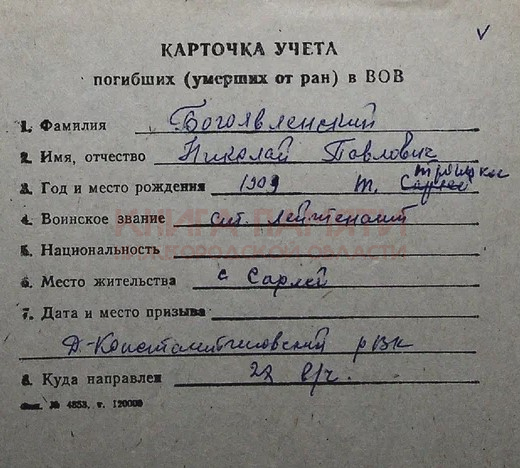 КАРТОЧКА УЧЕТА
погибших (умерших от ран) в ВОВ
1. Фамилия Богоявленский
2. Имя, отчество Николай Павлович
3. Год и место рождения 1909 т.
4. Воинское звание ст. лейтенант
5. Национальность
6. Место жительства с Сарлей
7. Дата и место призыва
Д-Константиновский РВК
8. Куда направлен в/ч.
Фил. № 4853, т. 120000
КНИГА ПАМЯТИ
НИЖЕГОРОДСКОЙ ОБЛАСТИ